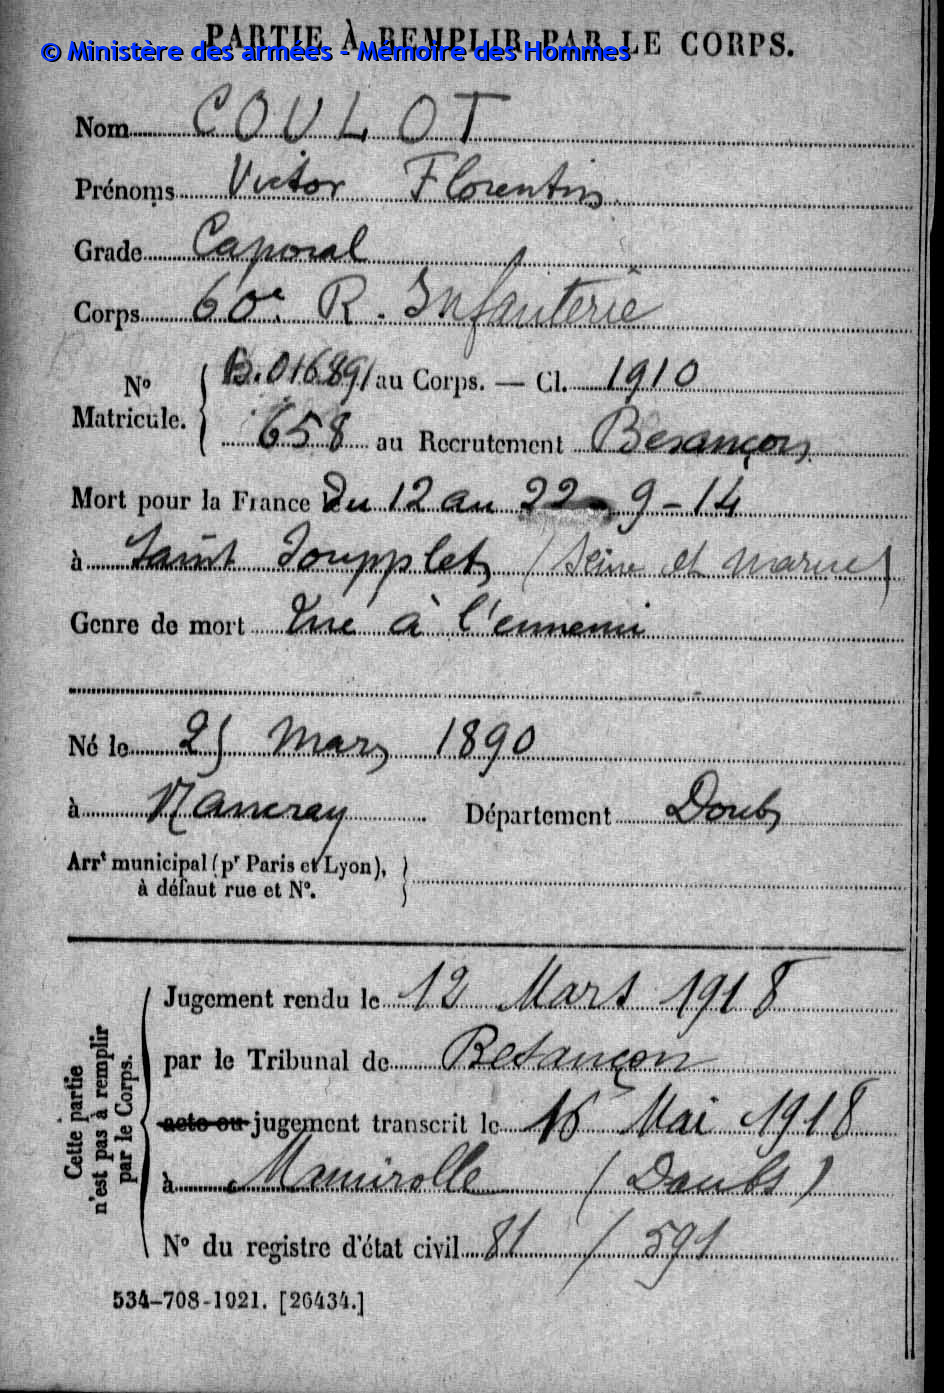 PARTIE À REMPLIR PAR LE CORPS.
© Ministère des armées - Mémoire des Hommes
Nom COULOT
Prénoms Victor Florentin
Grade Caporal
Corps 60e R. Infanterie
No Matricule. B.01689 / au Corps. — Cl. 1910
658 au Recrutement Besançon
Mort pour la France Du 12 au 22 9-14
à Saint Soupplets (Seine et Marne)
Genre de mort Tué à l'ennemi
Né le 25 Mars 1890
à Nancray Département Doubs
Arrt municipal (pr Paris et Lyon),
à défaut rue et No.
Cette partie n'est pas à remplir par le Corps.
Jugement rendu le 12 Mars 1918
par le Tribunal de Besançon
acte ou jugement transcrit le 16 Mai 1918
à Mamirolle (Doubs)
No du registre d'état civil 81 / 591
534-708-1921. [26434.]